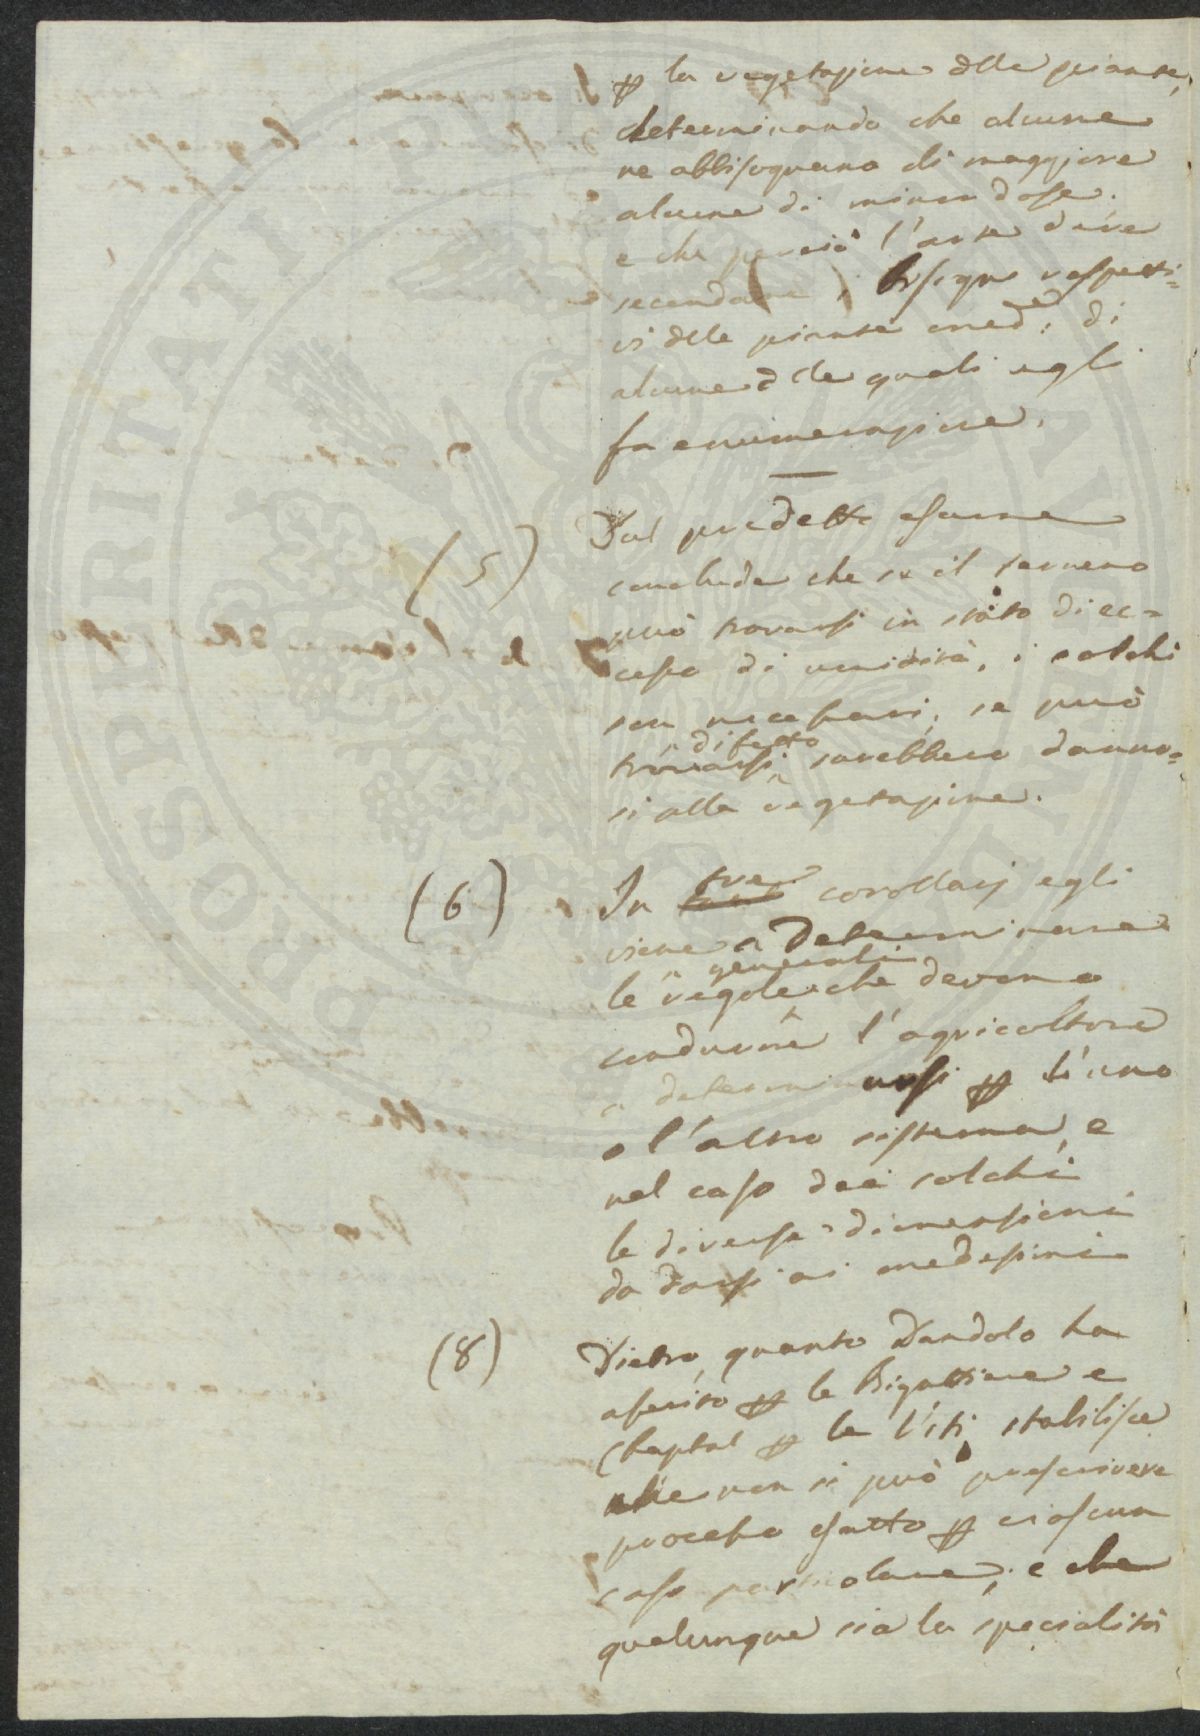 PROSPERITATI PUBLICAE
p la vegetazione delle piante,
determinando che alcune
ne abbisognano di maggiore
alcune di minor dose.
e che perciò l'arte deve
secondare i bisogni rispetti=
vi delle piante med.e di
alcune delle quali egli
fa enumerazione.
(5)
Dal predetto esame
conclude che se il terreno
può trovarsi in stato di ec=
cesso di umidità, i solchi
son necessari, se può
trovarsi in difetto sarebbero danno=
si alla vegetazione.
(6)
In tre corollarj egli
viene a determinare
le regole generali che devono
condurre l'agricoltore
a determinarsi p l'uno
o l'altro sistema, e
nel caso dei solchi
le diverse dimensioni
da darsi ai medesimi
(8)
Dietro quanto Dandolo ha
asserito p le Bigattiere e
Chaptal p le Viti stabilisce
che non si può prescrivere
processo esatto p ciascun
caso particolare, e che
qualunque sia la specialità